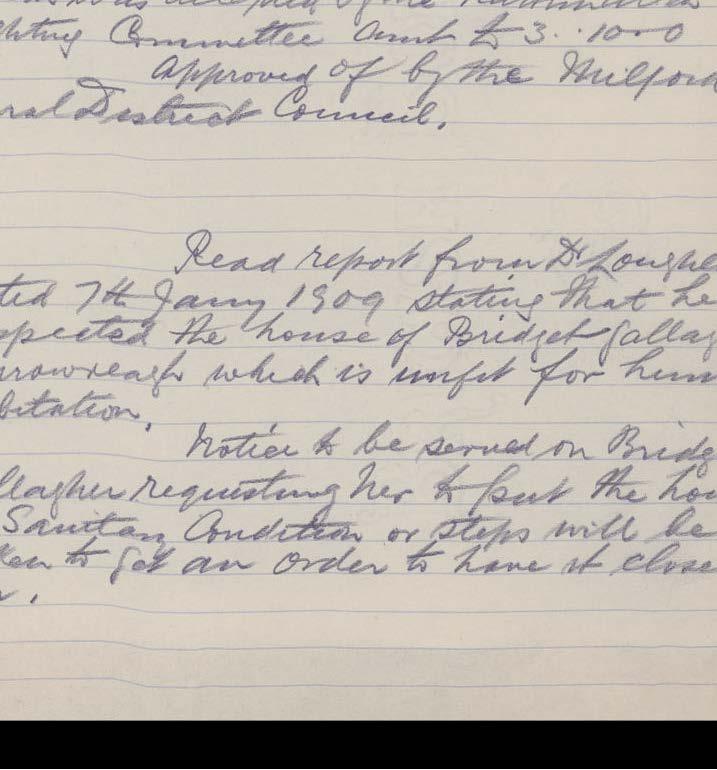 accepted of the
hting Committee Amt to £3..10-0
Approved of by the Milford
ral District Council.
Read report from Dr Loughe
ted 7th Jany 1909 stating that he
spected the house of Bridget Gallag
urrowreagh which is unfit for hum
bitation.
Notice to be served on Bridg
llagher requesting her to put the hou
Sanitary Condition or steps will be
ken to get an order to have it close